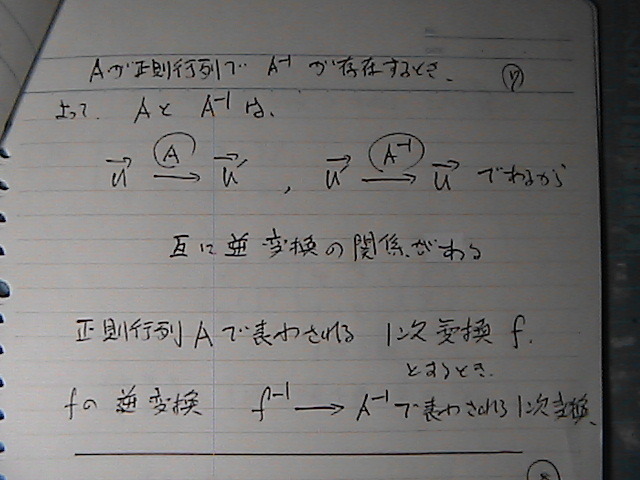 Aが正則行列で A⁻¹ が存在するとき、
よって、AとA⁻¹は、
u⃗ —A→ u⃗′ , u⃗′ —A⁻¹→ u⃗ であるから
互に逆変換の関係がある
正則行列Aで表わされる 1次変換 f.
とするとき、
fの逆変換 f⁻¹ → A⁻¹で表わされる1次変換